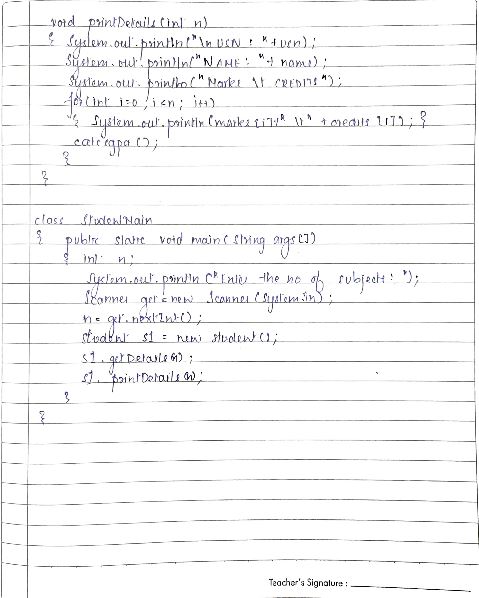 void printDetails(int n)
{ System.out.println("\n USN : " + usn);
System.out.println("NAME : " + name);
System.out.println("Marks \t CREDITS");
for(int i=0 ; i<n ; i++)
{ System.out.println(marks[i]+" \t" + credits[i]); }
calcsgpa();
}
}
class StudentMain
{ public static void main(String args[])
{ int n;
System.out.println("Enter the no of subjects: ");
Scanner get = new Scanner(System.in);
n = get.nextInt();
Student s1 = new student();
s1.getDetails(n);
s1.printDetails(n);
}
}
Teacher's Signature :